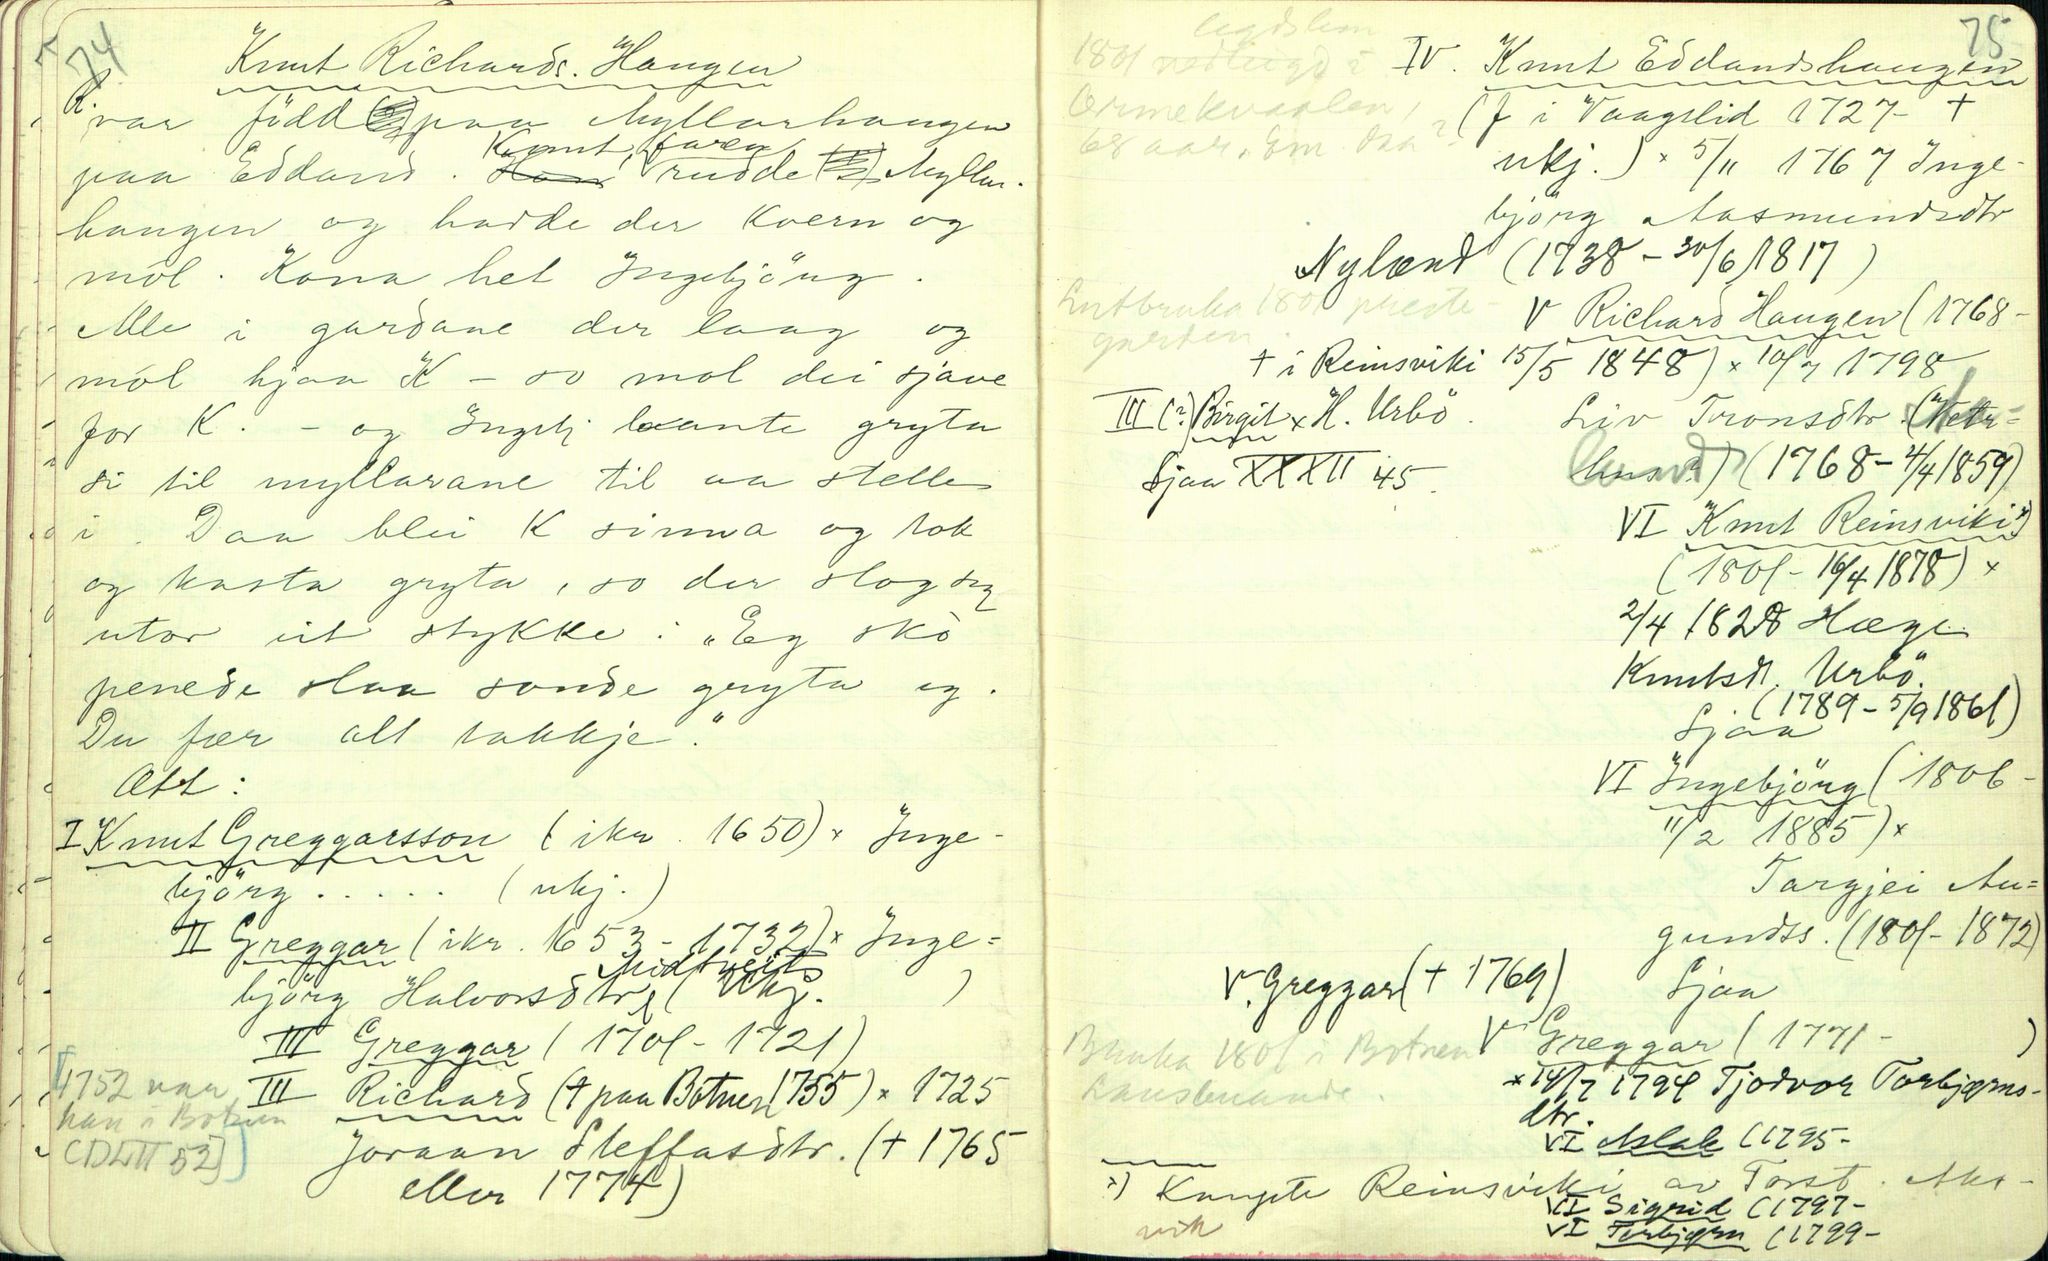 74
Knut Richards. Haugen
R. var född paa Myllarhaugen
paa Eddand. Knut, faren, rudde Myllar-
haugen og hadde der kvern og
möl. Kona het Ingebjörg.
Alle i gardane der laag og
möl hjaa K – so mol dei sjave
for K. – og Ingebj laante gryta
si til myllarane til aa stelle
i. Daa blei K sinna og tok
og kasta gryta, so der slog seg
utor eit stykke: „Eg skò
penede slaa sonde gryta eg.
Du fær alt takkje."
Ætt:
I Knut Greggarsson (ikr. 1650) × Inge-
björg ..... (ukj.)
II Greggar (ikr. 1653 – 1732) × Inge-
björg Halvorsdtr Midtveits (ukj. )
III Greggar (1701 – 1721)
III Richard (+ paa Botnen 1755) × 1725
Joraan Steffasdtr. (+ 1765
eller 1774)
1752 var
han i Botnen
(DLII 52)
75
legdslem
1801 i
Ormekvaalen,
68 aar. Em.
IV. Knut Eddandshaugen
(f i Vaagslid 1727 – +
ukj.) × 5/11 1767 Inge-
björg Aasmundsdtr
Nyland (1738 – 30/6 1817)
Innbruka 1801 preste-
garden.
V Richard Haugen (1768 –
+ i Reinsviki 15/5 1848) × 10/7 1798
Liv Tronsdtr.
(1768 – 4/4 1859)
III (?) Birgit × H. Urbö.
Sjaa XXXII 45.
VI Knut Reinsviki ×)
(1801 – 16/4 1878) ×
2/4 1828 Hæge
Knutsdt. Urbö.
(1789 – 5/9 1861)
Sjaa
VI Ingebjörg (1806 –
11/2 1885) ×
Targjei Au=
gundss. (1801 – 1872)
Sjaa
V. Greggar (+ 1769)
V Greggar (1771 – )
× 14/7 1794 Tjodvor Torbjørns-
dtr.
Bruka 1801 i Botnen
Lausbuande.
VI Aslak (1795 –
×) Kaupte Reinsviki av Torst. Aka-
vik
VI Sigrid (1797 –
VI Torbjørn (1799 –